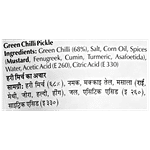 Green Chilli Pickle
Ingredients: Green Chilli (68%), Salt, Corn Oil, Spices
(Mustard, Fenugreek, Cumin, Turmeric, Asafoetida),
Water, Acetic Acid (E 260), Citric Acid (E 330)
हरी मिर्च का अचार
सामग्री: हरी मिर्च (६८%), नमक, मक्काई तेल, मसाला (राई,
मेथी, जीरा, हल्दी, हींग), जल, एसिटिक एसिड (इ २६०),
साइट्रिक एसिड (इ ३३०)